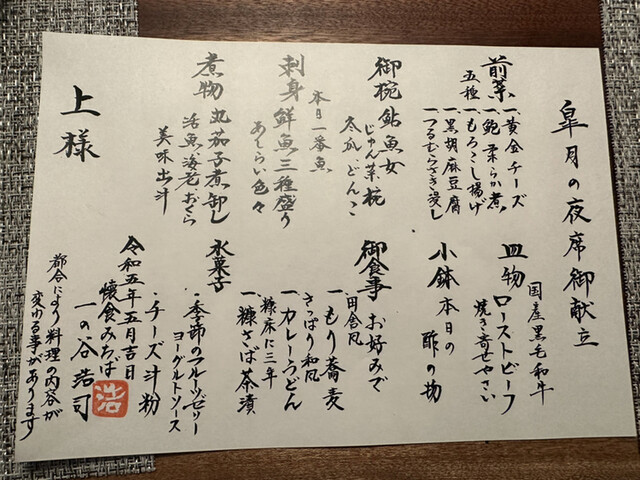 皐月の夜席御献立
前菜
五種
一、黄金チーズ
一、鮑柔らか煮
一、もろこし揚げ
一、黒胡麻豆腐
一、つるむらさき浸し
御椀 鮎魚女
じゅん菜 椀
冬瓜、どんこ
刺身 鮮魚三種盛り
本日一番魚
あしらい色々
煮物 丸茄子煮卸し
活魚、海老おくら
美味出汁
上様
皿物 ローストビーフ
国産黒毛和牛
焼き寄せやさい
小鉢 本日の
酢の物
御食事 お好みで
田舎風
一、もり蕎麦
さっぱり和風
一、カレーうどん
糠床に三年
一、糠さば茶漬
水菓子
・季節のフルーツゼリー
ヨーグルトソース
・チーズ汁粉
令和五年五月吉日
懐食みちば
一の谷浩司
浩
都合により料理の内容が
変わる事があります